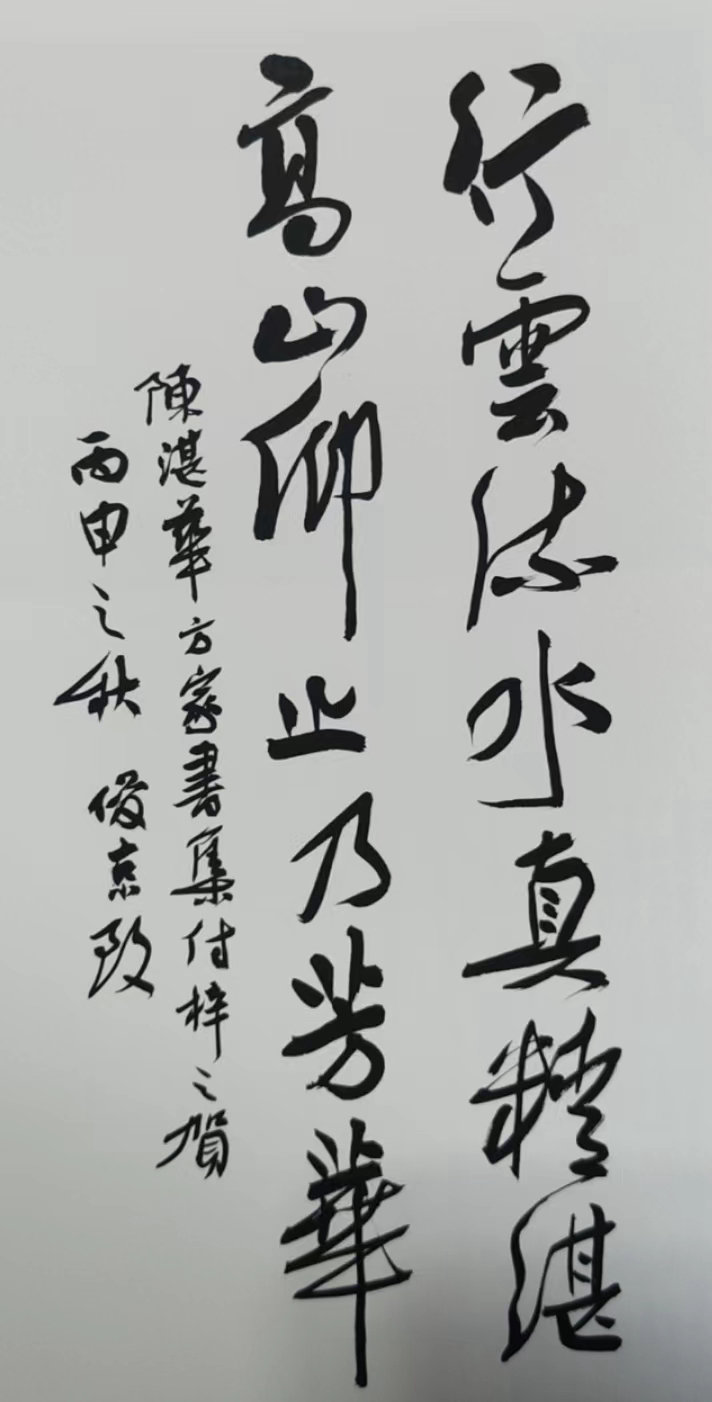 行雲流水真精湛
高山仰止乃芳華
陳湛華方家書集付梓之賀
丙申之秋 俊京致